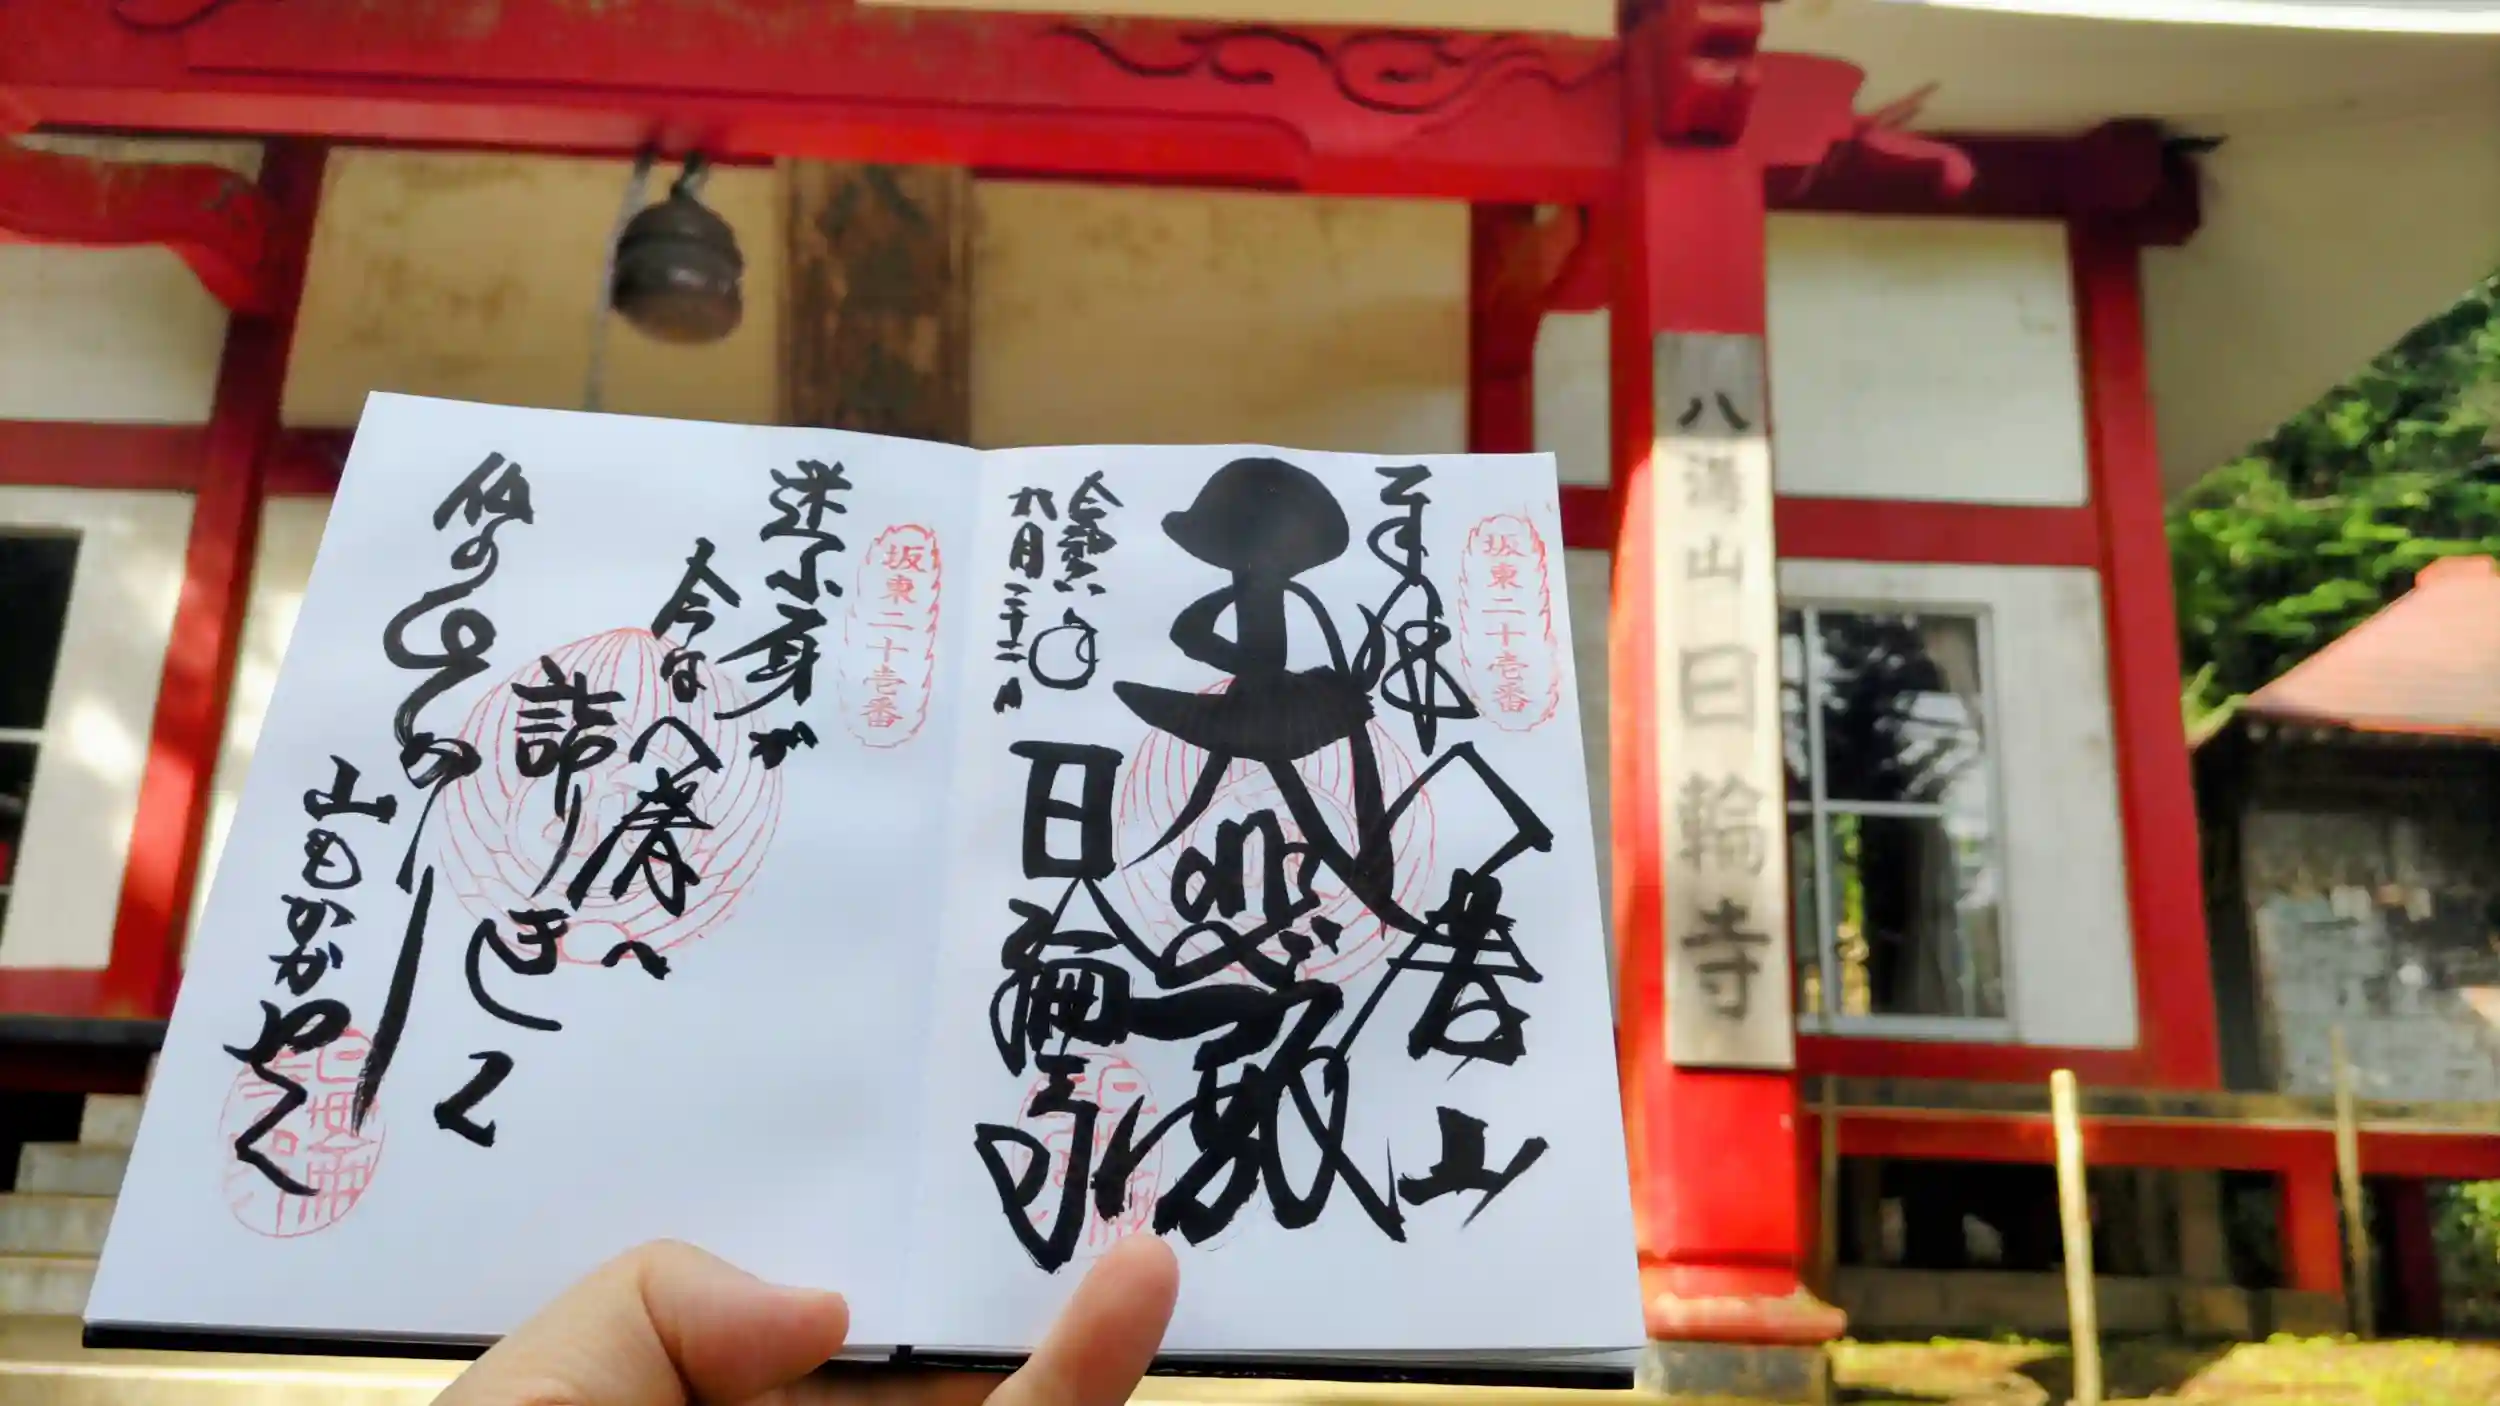 八溝山日輪寺
坂東二十壱番
奉拝
八溝山
大悲殿
令和六年
九月二十二日
日輪寺
坂東二十壱番
迷ふ身が
今は八溝へ
詣りきて
仏のひかり
山もかがやく